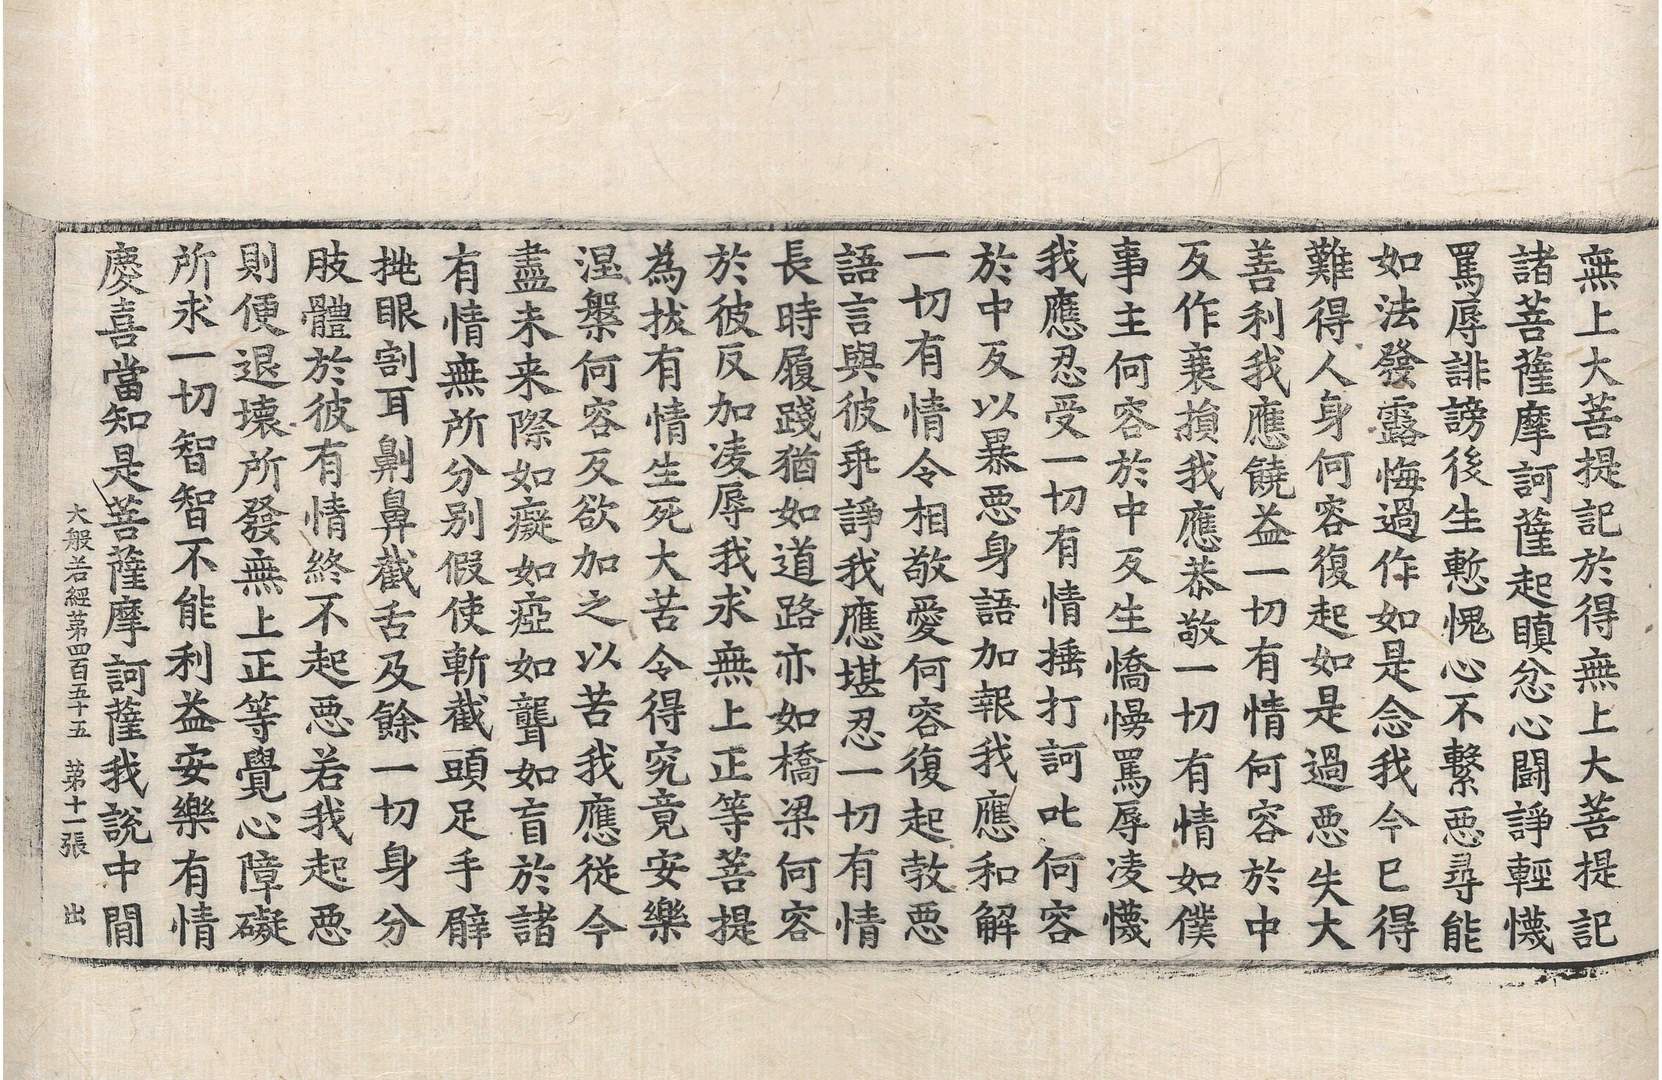 無上大菩提記於得無上大菩提記
諸菩薩摩訶薩起瞋忿心鬪諍輕懱
罵辱誹謗後生慙愧心不繫惡尋能
如法發露悔過作如是念我今已得
難得人身何容復起如是過惡失大
善利我應饒益一切有情何容於中
反作衰損我應恭敬一切有情如僕
事主何容於中反生憍慢罵辱凌懱
我應忍受一切有情捶打訶叱何容
於中反以暴惡身語加報我應和解
一切有情令相敬愛何容復起勃惡
語言與彼乖諍我應堪忍一切有情
長時履踐猶如道路亦如橋梁何容
於彼反加凌辱我求無上正等菩提
為拔有情生死大苦令得究竟安樂
涅槃何容反欲加之以苦我應從今
盡未来際如癡如瘂如聾如盲於諸
有情無所分别假使斬截頭足手臂
挑眼割耳劓鼻截舌及餘一切身分
肢體於彼有情終不起惡若我起惡
則便退壞所發無上正等覺心障礙
所求一切智智不能利益安樂有情
慶喜當知是菩薩摩訶薩我說中間
大般若經第四百五十五 第十一張 出